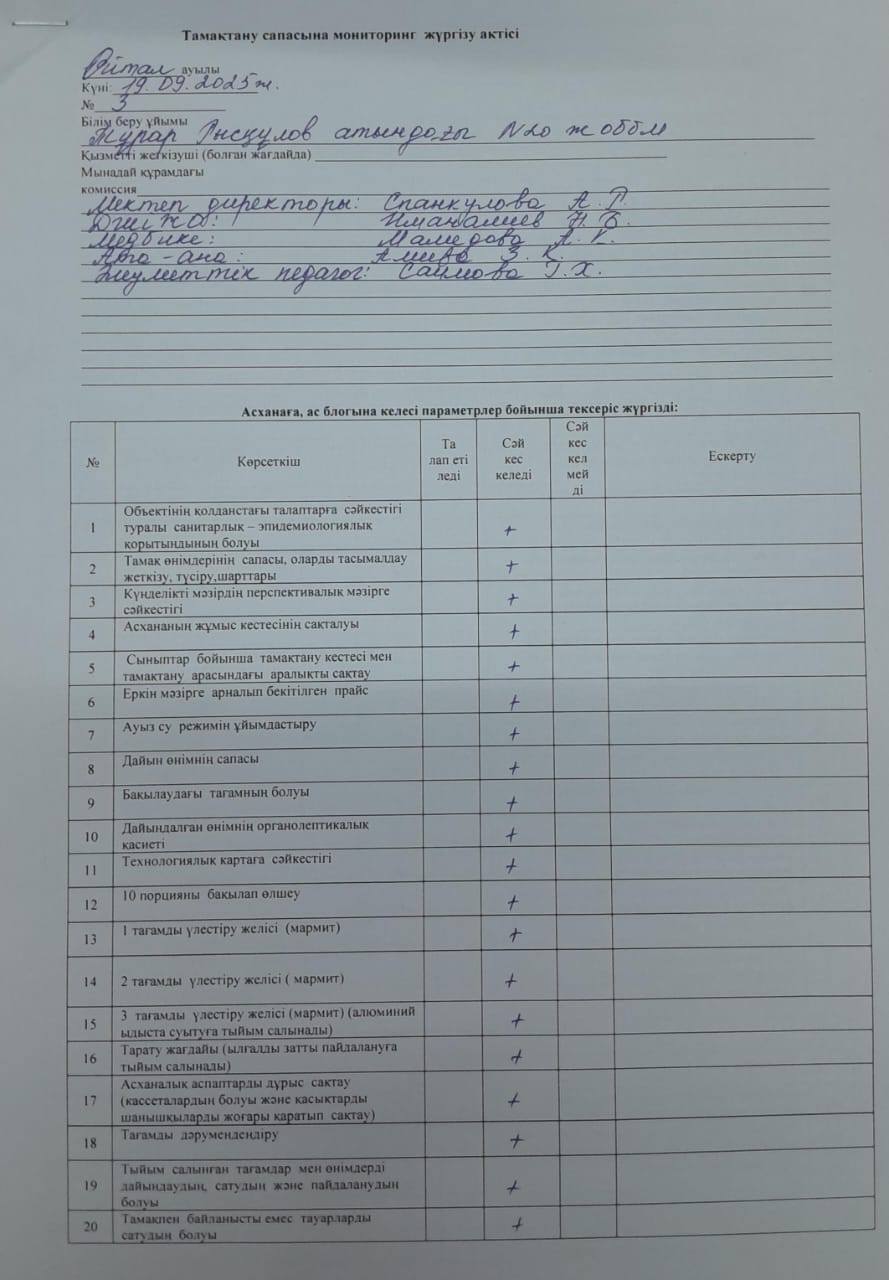 Тамақтану сапасына мониторинг жүргізу актісі
Ойтал ауылы
Күні: 19.09.2025ж.
№ 3
Білім беру ұйымы
Тұрар Рысқұлов атындағы N20 жоббм
Қызметті жеткізуші (болған жағдайда)
Мынадай құрамдағы
комиссия
Мектеп директоры: Спанкулова А.Р.
ДШІЖО: Иманалиев Н.Б.
Медбике: Мамедова А.К.
Ата-ана: Алиева З.К.
Әлуметтік педагог: Саимова Г.Х.
Асханаға, ас блогына келесі параметрлер бойынша тексеріс жүргізді:
№ Көрсеткіш Та лап еті леді Сәй кес келеді Сәй кес кел мей ді Ескерту
1 Объектінің қолданстағы талаптарға сәйкестігі
туралы санитарлық – эпидемиологиялық
қорытындының болуы +
2 Тамақ өнімдерінің сапасы, оларды тасымалдау
жеткізу, түсіру,шарттары +
3 Күнделікті мәзірдің перспективалық мәзірге
сәйкестігі +
4 Асхананың жұмыс кестесінің сақталуы +
5 Сыныптар бойынша тамақтану кестесі мен
тамақтану арасындағы аралықты сақтау +
6 Еркін мәзірге арналып бекітілген прайс +
7 Ауыз су режимін ұйымдастыру +
8 Дайын өнімнің сапасы +
9 Бақылаудағы тағамның болуы +
10 Дайындалған өнімнің органолептикалық
қасиеті +
11 Технологиялық картаға сәйкестігі +
12 10 порцияны бақылап өлшеу +
13 1 тағамды үлестіру желісі (мармит) +
14 2 тағамды үлестіру желісі ( мармит) +
15 3 тағамды үлестіру желісі (мармит) (алюминий
ыдыста суытуға тыйым салынады) +
16 Тарату жағдайы (ылғалды затты пайдалануға
тыйым салынады) +
17 Асханалық аспаптарды дұрыс сақтау
(кассеталардың болуы және қасықтарды
шанышқыларды жоғары қаратып сақтау) +
18 Тағамды дәрумендендіру +
19 Тыйым салынған тағамдар мен өнімдерді
дайындаудың, сатудың және пайдаланудың
болуы +
20 Тамақпен байланысты емес тауарларды
сатудың болуы +